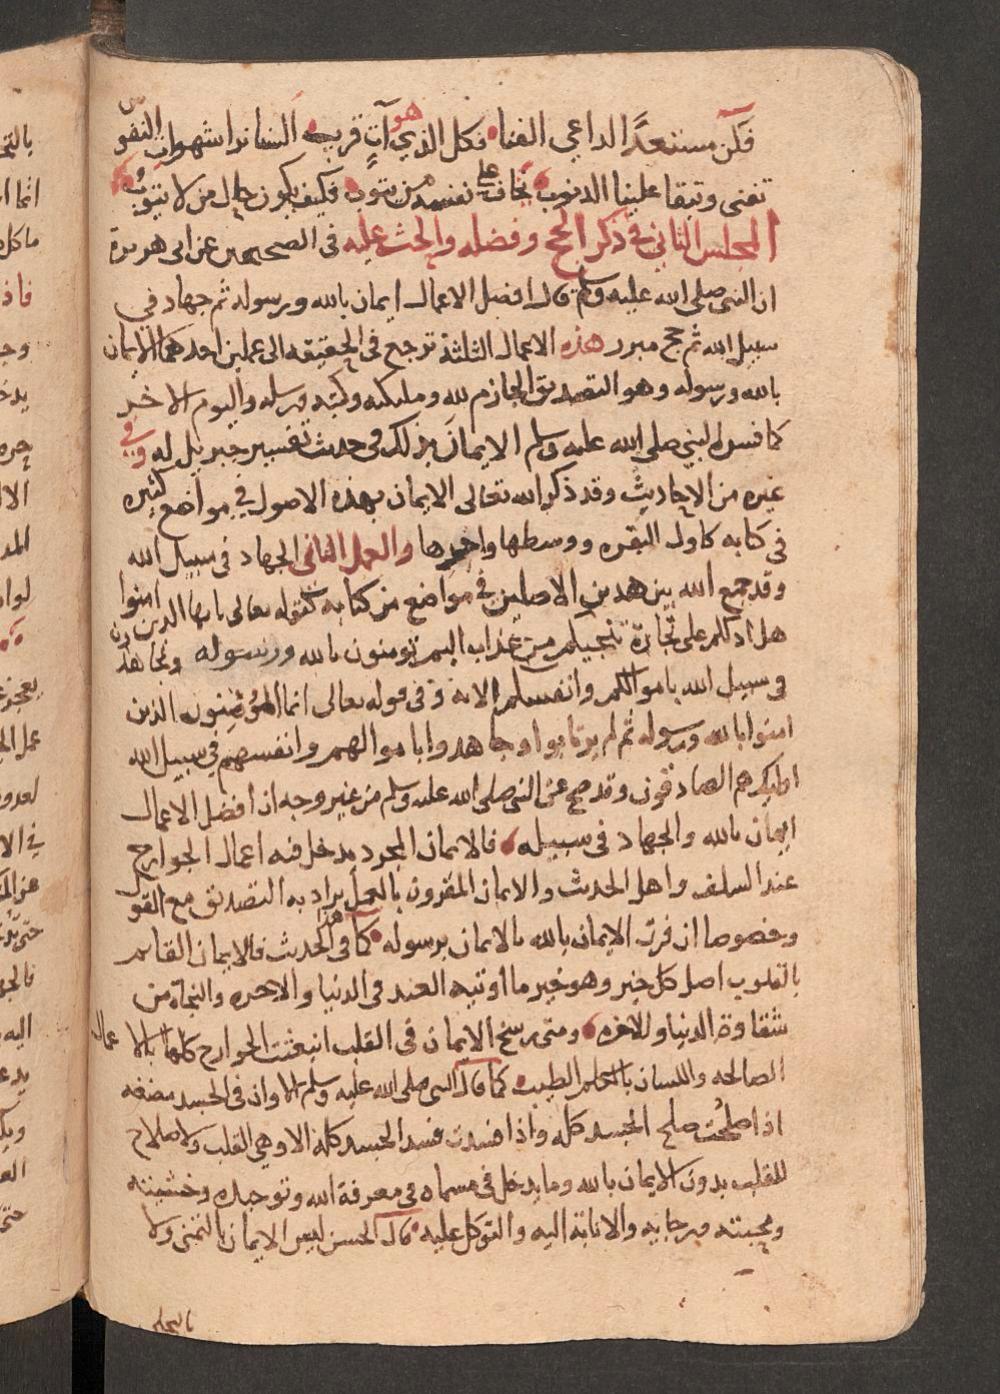 فكن مستعدًّا لداعي الفنا فكل الذي هو آتٍ قريب السنا نرا شهوات النفوس
تفنى وتبقا علينا الذنوب يخاف على نفسه من يتوب فكيف يكون حال من لا يتوب
المجلس الثاني في ذكر الحج وفضله والحث عليه في الصحيحين عن ابي هريرة
ان النبي صلى الله عليه وسلم قال افضل الاعمال ايمان بالله ورسوله ثم جهاد في
سبيل الله ثم حج مبرور هذه الاعمال الثلثة ترجع في الحقيقة الى عملين احدهما الايمان
بالله ورسوله وهو التصديق الجازم لله وملىكته وكتبه ورسله واليوم الاخر
كما فسره النبي صلى الله عليه وسلم الايمان بذلك في حديث تفسير جبريل له وفي
غيره من الاحاديث وقد ذكر الله تعالى الايمان بهذه الاصول في مواضع كثيره
في كتابه كاول البقره ووسطها واخرها والعمل الثاني الجهاد في سبيل الله
وقد جمع الله بين هذين الاصلين في مواضع من كتابه كقوله تعالى يايها الذين امنوا
هل ادلكم على تجارة تنجيكم من عذاب اليم تومنون بالله ورسوله وتجاهدون
في سبيل الله باموالكم وانفسكم الاية وفي قوله تعالى انما المؤمنون الذين
امنوا بالله ورسوله ثم لم يرتابوا وجاهدوا باموالهم وانفسهم في سبيل الله
اوليك هم الصادقون وقد صح عن النبي صلى الله عليه وسلم من غير وجه ان افضل الاعمال
ايمان بالله والجهاد في سبيله فالايمان المجرد يدخل فيه اعمال الجوارح
عند السلف واهل الحديث والايمان المقرون بالعمل يراد به التصديق مع القول
وخصوصا ان قرن الايمان بالله بالايمان برسوله كما في هذا الحديث فالايمان القايم
بالقلوب اصل كل خير وهو خير ما اوتيه العبد في الدنيا والاخره والنجاة من
شقاوة الدنيا والاخره ومتى رسخ الايمان في القلب انبعثت الجوارح كلها بالاعمال
الصالحه واللسان بالكلم الطيب كما قال النبي صلى الله عليه وسلم الا وان في الجسد مضغه
اذا صلحت صلح الجسد كله واذا فسدت فسد الجسد كله الا وهي القلب ولا صلاح
للقلب بدون الايمان بالله وما يدخل في مسماه في معرفة الله وتوحيده وخشيته
ومحبته ورجايه والانابة اليه والتوكل عليه قال الحسن ليس الايمان بالتمني ولا
بالتحلي